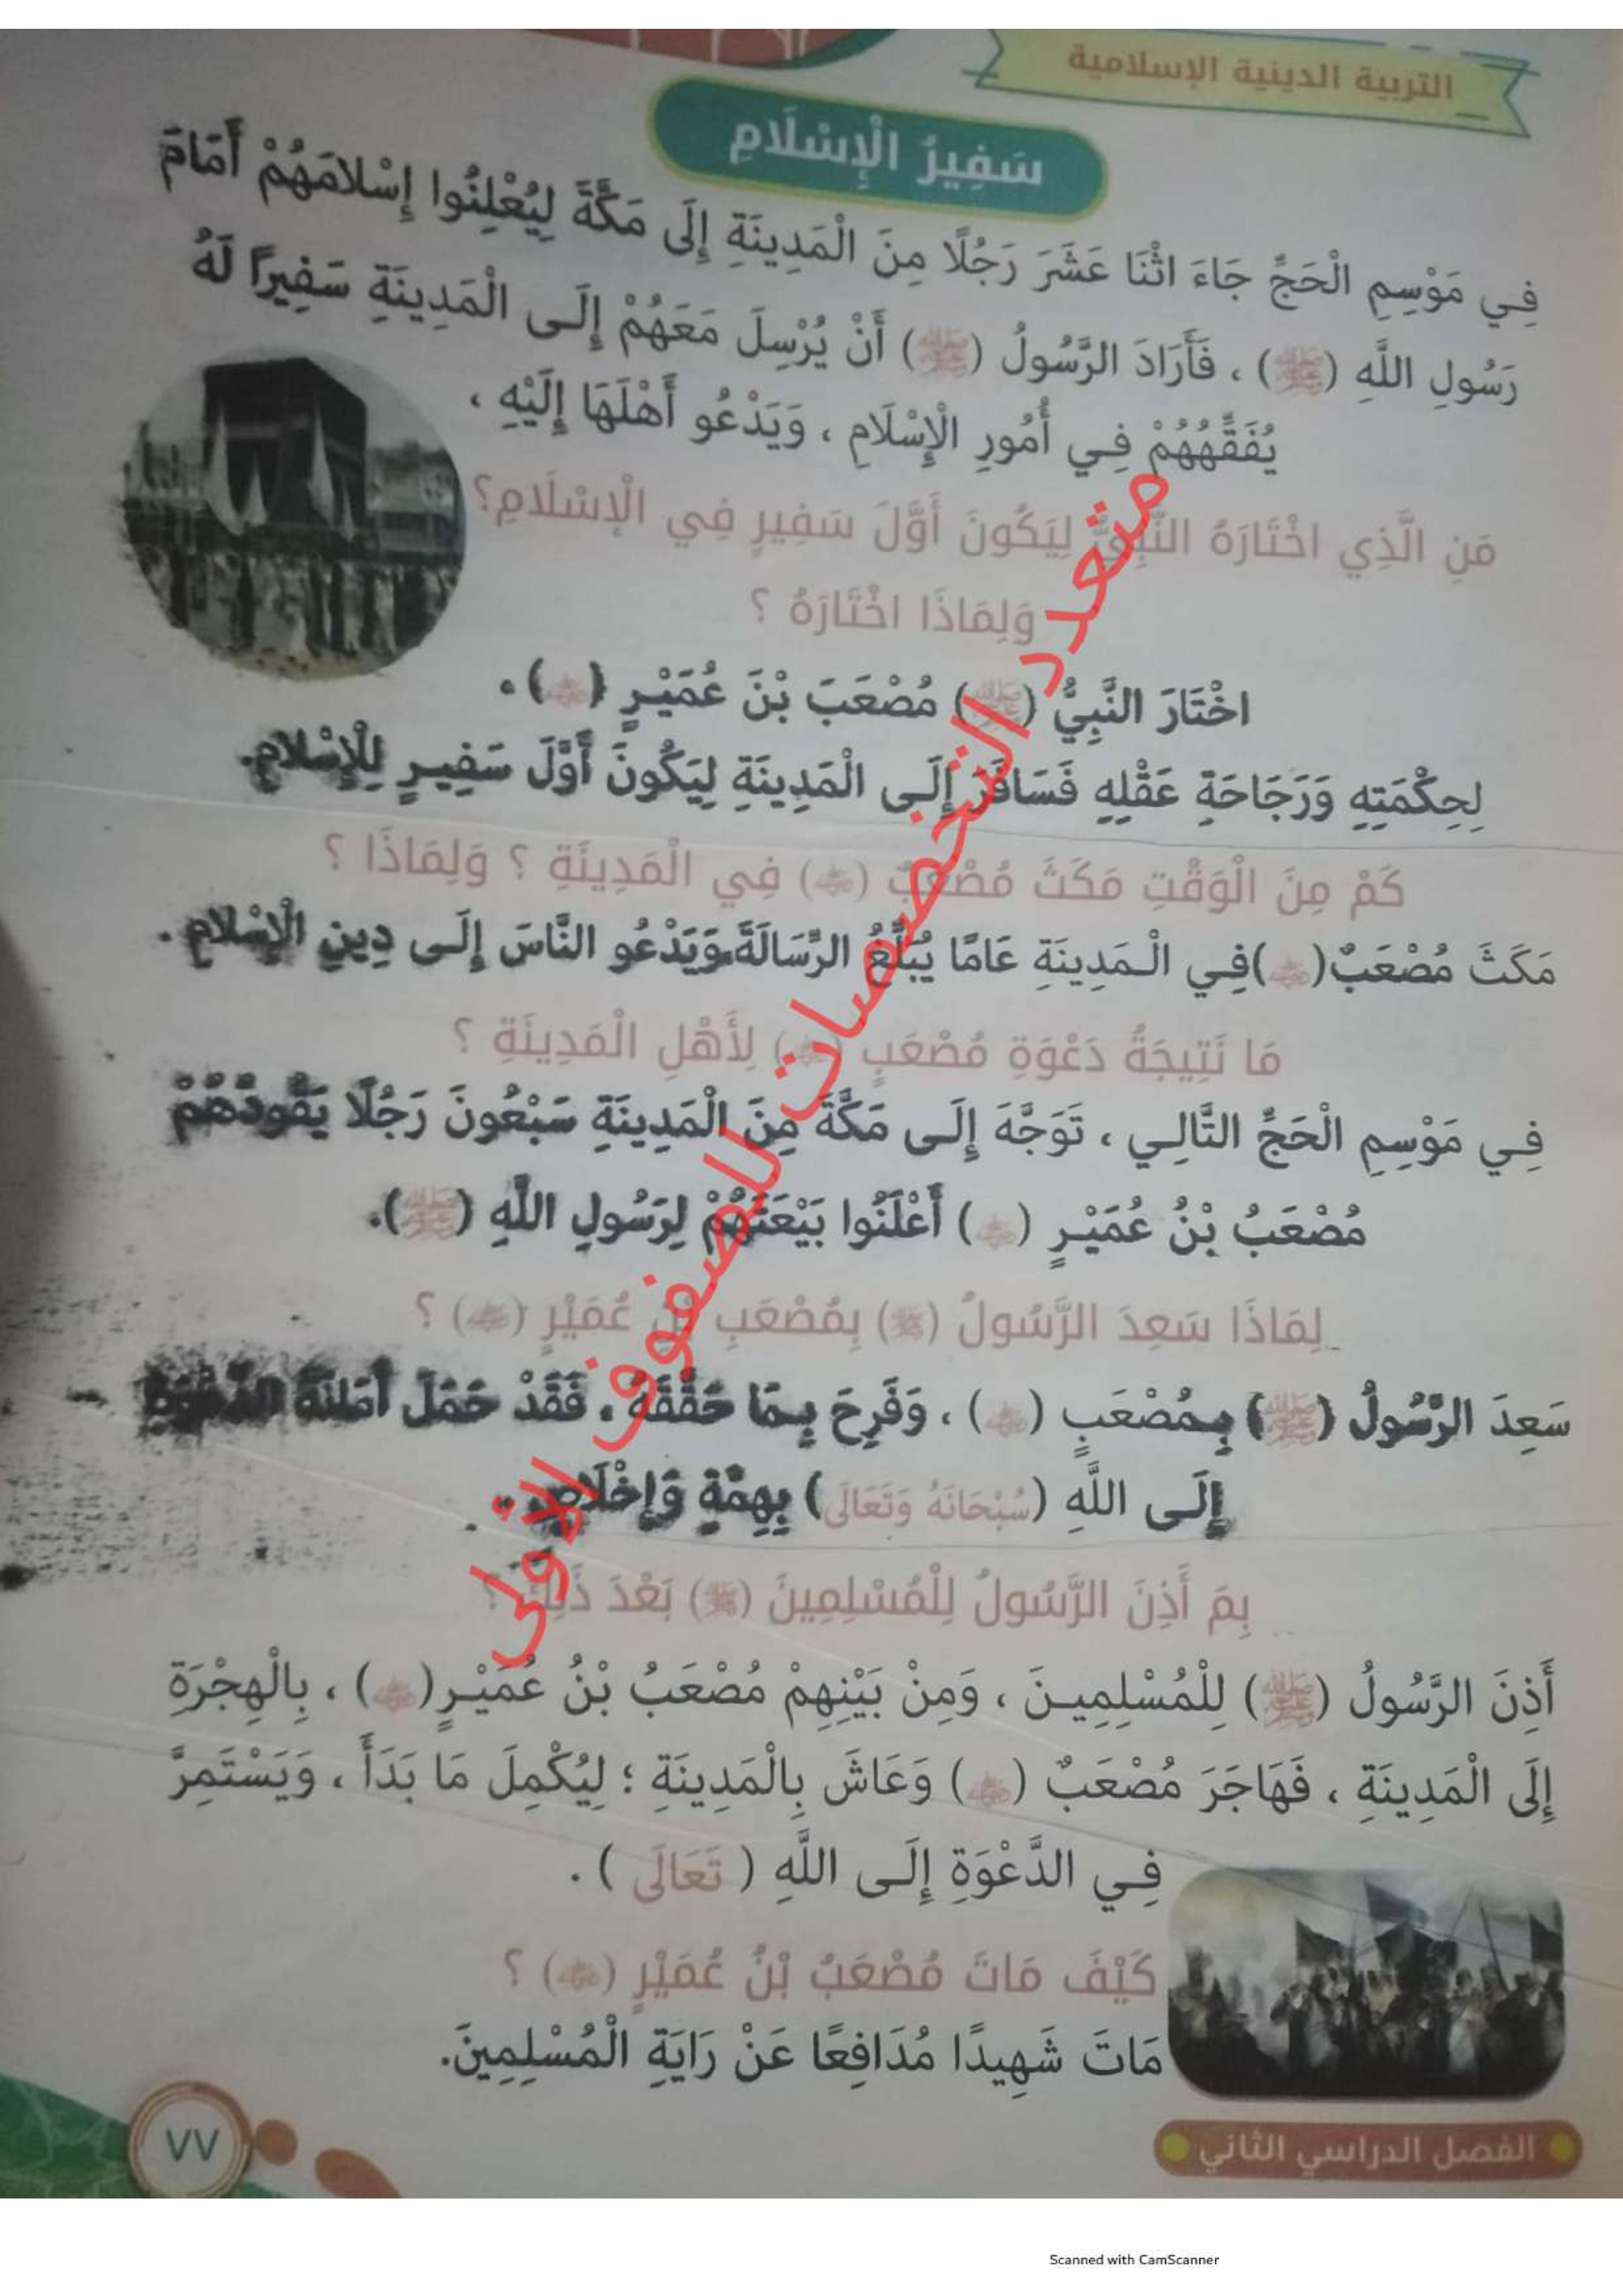 التربية الدينية الإسلامية
سَفِيرُ الْإِسْلَامِ
فِي مَوْسِمِ الْحَجِّ جَاءَ اثْنَا عَشَرَ رَجُلًا مِنَ الْمَدِينَةِ إِلَى مَكَّةَ لِيُعْلِنُوا إِسْلَامَهُمْ أَمَامَ
رَسُولِ اللَّهِ (ﷺ) ، فَأَرَادَ الرَّسُولُ (ﷺ) أَنْ يُرْسِلَ مَعَهُمْ إِلَى الْمَدِينَةِ سَفِيرًا لَهُ
يُفَقِّهُهُمْ فِي أُمُورِ الْإِسْلَامِ ، وَيَدْعُو أَهْلَهَا إِلَيْهِ ،
مَنِ الَّذِي اخْتَارَهُ النَّبِيُّ لِيَكُونَ أَوَّلَ سَفِيرٍ فِي الْإِسْلَامِ؟
وَلِمَاذَا اخْتَارَهُ ؟
اخْتَارَ النَّبِيُّ (ﷺ) مُصْعَبَ بْنَ عُمَيْرٍ (رضي الله عنه) .
لِحِكْمَتِهِ وَرَجَاحَةِ عَقْلِهِ فَسَافَرَ إِلَى الْمَدِينَةِ لِيَكُونَ أَوَّلَ سَفِيرٍ لِلْإِسْلَامِ.
كَمْ مِنَ الْوَقْتِ مَكَثَ مُصْعَبٌ (رضي الله عنه) فِي الْمَدِينَةِ ؟ وَلِمَاذَا ؟
مَكَثَ مُصْعَبٌ (رضي الله عنه) فِي الْمَدِينَةِ عَامًا يُبَلِّغُ الرِّسَالَةَ وَيَدْعُو النَّاسَ إِلَى دِينِ الْإِسْلَامِ .
مَا نَتِيجَةُ دَعْوَةِ مُصْعَبٍ (رضي الله عنه) لِأَهْلِ الْمَدِينَةِ ؟
فِي مَوْسِمِ الْحَجِّ التَّالِي ، تَوَجَّهَ إِلَى مَكَّةَ مِنَ الْمَدِينَةِ سَبْعُونَ رَجُلًا يَقُودُهُمْ
مُصْعَبُ بْنُ عُمَيْرٍ (رضي الله عنه) أَعْلَنُوا بَيْعَتَهُمْ لِرَسُولِ اللَّهِ (ﷺ).
لِمَاذَا سَعِدَ الرَّسُولُ (ﷺ) بِمُصْعَبِ بْنِ عُمَيْرٍ (رضي الله عنه) ؟
سَعِدَ الرَّسُولُ (ﷺ) بِمُصْعَبٍ (رضي الله عنه) ، وَفَرِحَ بِمَا حَقَّقَهُ ، فَقَدْ حَمَلَ أَمَانَةَ الدَّعْوَةِ
إِلَى اللَّهِ (سُبْحَانَهُ وَتَعَالَى) بِهِمَّةٍ وَإِخْلَاصٍ .
بِمَ أَذِنَ الرَّسُولُ لِلْمُسْلِمِينَ (ﷺ) بَعْدَ ذَلِكَ ؟
أَذِنَ الرَّسُولُ (ﷺ) لِلْمُسْلِمِينَ ، وَمِنْ بَيْنِهِمْ مُصْعَبُ بْنُ عُمَيْرٍ (رضي الله عنه) ، بِالْهِجْرَةِ
إِلَى الْمَدِينَةِ ، فَهَاجَرَ مُصْعَبٌ (رضي الله عنه) وَعَاشَ بِالْمَدِينَةِ ؛ لِيُكْمِلَ مَا بَدَأَ ، وَيَسْتَمِرَّ
فِي الدَّعْوَةِ إِلَى اللَّهِ ( تَعَالَى ) .
كَيْفَ مَاتَ مُصْعَبُ بْنُ عُمَيْرٍ (رضي الله عنه) ؟
مَاتَ شَهِيدًا مُدَافِعًا عَنْ رَايَةِ الْمُسْلِمِينَ.
الفصل الدراسي الثاني
٧٧
متعدد التخصصات للصفوف الأولى
Scanned with CamScanner